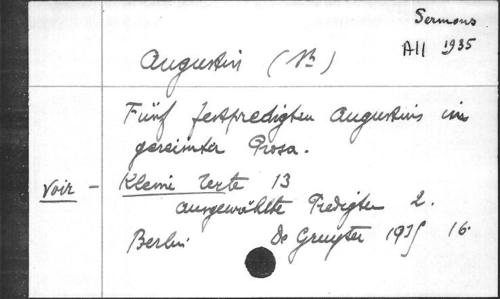 Sermons
All 1935
Augustin (St)
Fünf Festpredigten Augustins in
gereimter Prosa.
Voir - Kleine Texte 13
ausgewählte Predigten 2.
Berlin De Gruyter 1935 16.